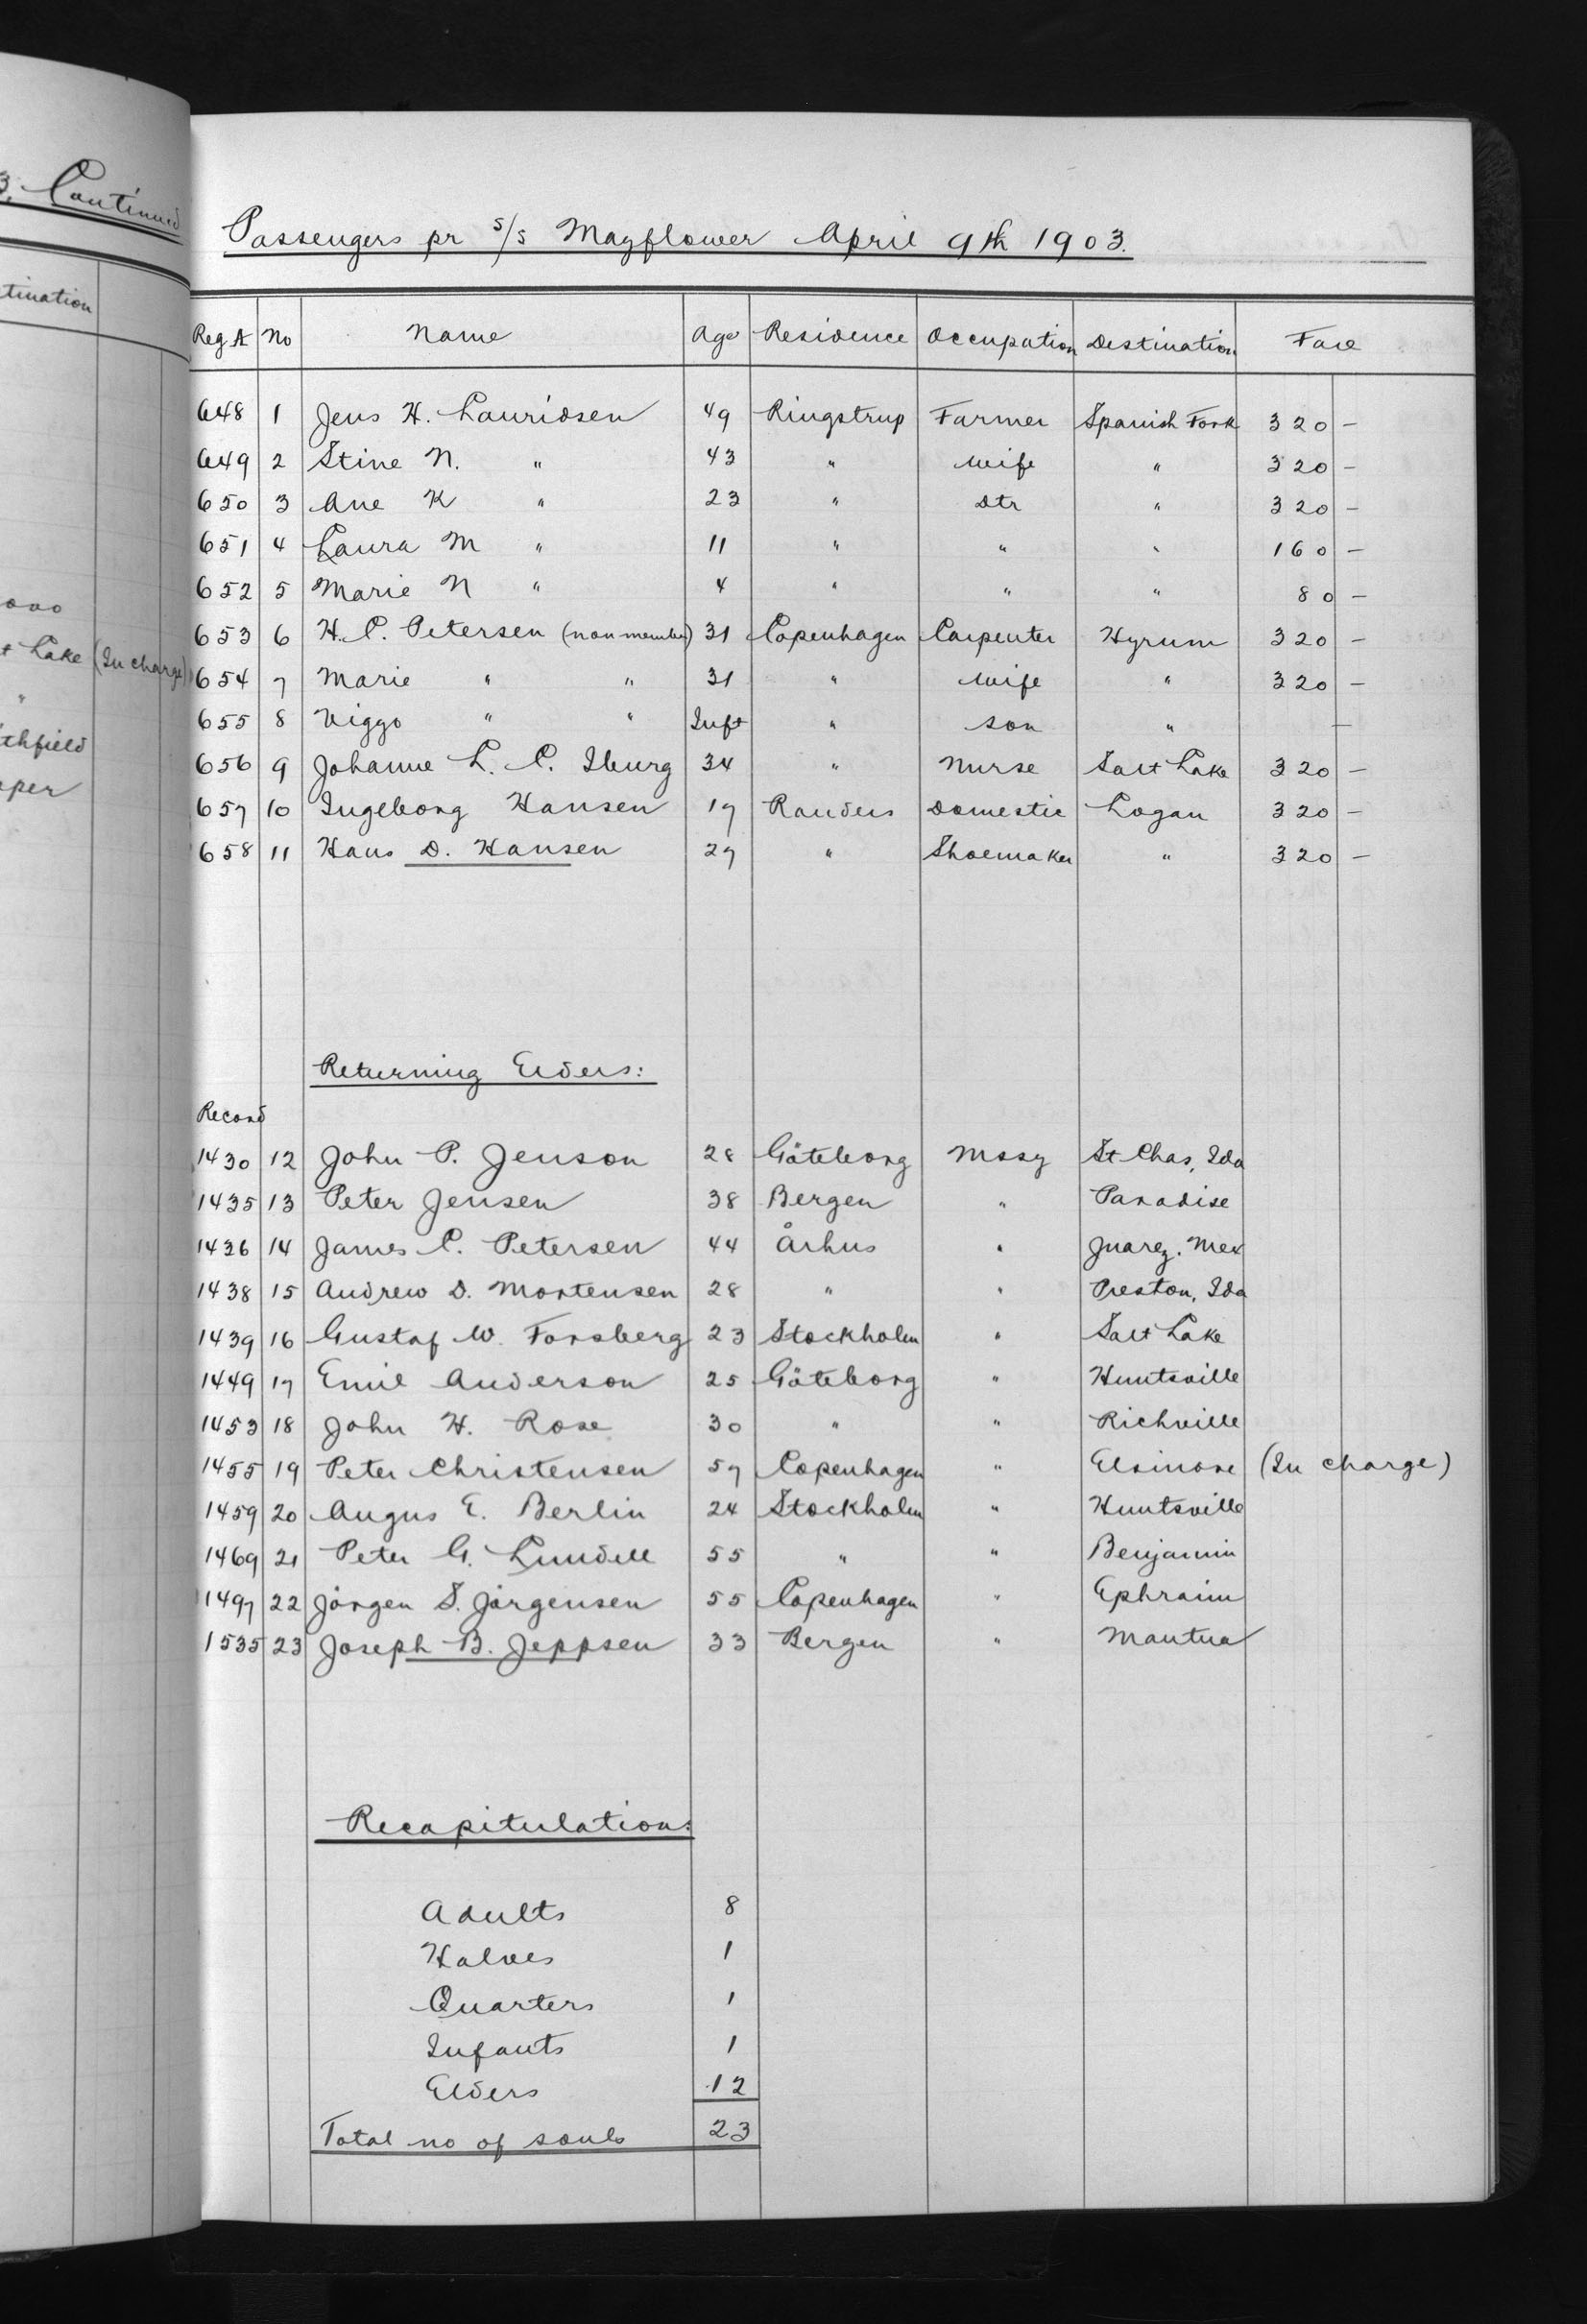 3. Continued
tination
ono
t Lake (In charge)
"
thfield
aper
Passengers pr s/s Mayflower April 9th 1903.
Reg A No Name Age Residence Occupation Destination Fare
648 1 Jens H. Lauridsen 49 Ringstrup Farmer Spanish Fork 320 –
649 2 Stine N. " 43 " wife " 320 –
650 3 Ane K " 23 " Dtr " 320 –
651 4 Laura M " 11 " " " 160 –
652 5 Marie N " 4 " " " 80 –
653 6 H. C. Petersen (nonmember) 31 Copenhagen Carpenter Hyrum 320 –
654 7 Marie " " 31 " wife " 320 –
655 8 Viggo " " Inft " son " –
656 9 Johanne L. C. Iburg 34 " Nurse Salt Lake 320 –
657 10 Ingeborg Hansen 17 Randers Domestic Logan 320 –
658 11 Hans D. Hansen 27 " Shoemaker " 320 –
Returning Elders:
Record
1430 12 John P. Jenson 28 Göteborg Mssy St Chas, Ida
1435 13 Peter Jensen 38 Bergen " Paradise
1436 14 James C. Petersen 44 Århus " Juarez. Mex
1438 15 Andrew D. Mortensen 28 " " Preston, Ida
1439 16 Gustaf W. Forsberg 23 Stockholm " Salt Lake
1449 17 Emil Anderson 25 Göteborg " Huntsville
1453 18 John H. Rose 30 " " Richville
1455 19 Peter Christensen 57 Copenhagen " Elsinore (In charge)
1459 20 Augus E. Berlin 24 Stockholm " Huntsville
1469 21 Peter G. Lundell 55 " " Benjamin
1497 22 Jörgen S. Jörgensen 55 Copenhagen " Ephraim
1535 23 Joseph B. Jeppsen 33 Bergen " Mantua
Recapitulation:
Adults 8
Halves 1
Quarters 1
Infants 1
Elders 12
Total no of souls 23